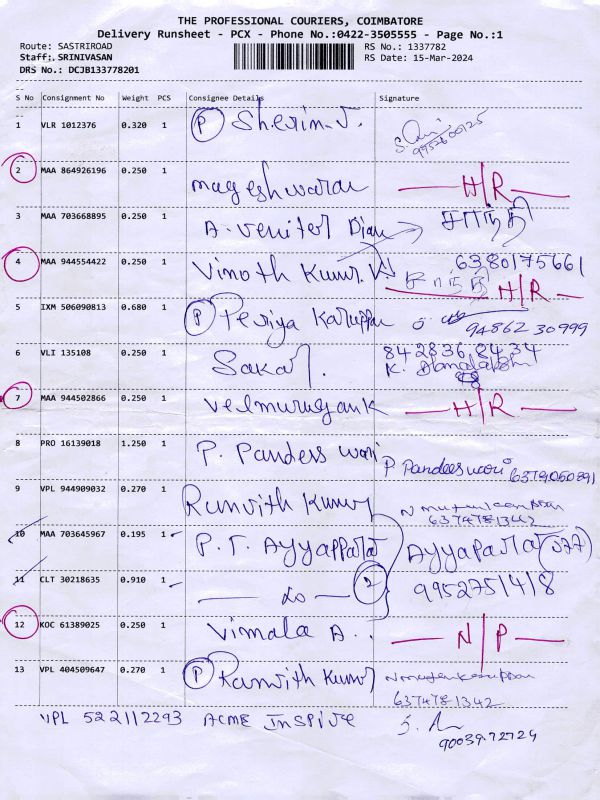 THE PROFESSIONAL COURIERS, COIMBATORE
Delivery Runsheet - PCX - Phone No.:0422-3505555 - Page No.:1
Route: SASTRIROAD RS No.: 1337782
Staff:. SRINIVASAN RS Date: 15-Mar-2024
DRS No.: DCJB133778201
S No Consignment No Weight PCS Consignee Details Signature
1 VLR 1012376 0.320 1 P Sherin.J.
2 MAA 864926196 0.250 1 mageshwaran H/R
3 MAA 703668895 0.250 1 A. Veniter Dian சாந்தி
4 MAA 944554422 0.250 1 Vinoth Kumar.K 6380175661
சாந்தி H/R
5 IXM 506090813 0.680 1 P Periya Karuppan 94862 30999
6 VLI 135108 0.250 1 Sakar. 842836 8434
K.
7 MAA 944502866 0.250 1 Velmurugan K H/R
8 PRO 16139018 1.250 1 P. Pandeeswari P Pandeeswari 6379060891
9 VPL 944909032 0.270 1 Ranvith Kumar N muthukaruppan
6374781342
10 MAA 703645967 0.195 1 P. T. AYYAPPARAJ AYYAPARAJ (577)
11 CLT 30218635 0.910 1 Do 2 9952751418
12 KOC 61389025 0.250 1 Vimala A.. N/P
13 VPL 404509647 0.270 1 P Ranvith Kumar N muthukaruppan
6374781342
VPL 522112293 ACME Inspire
90039.72729